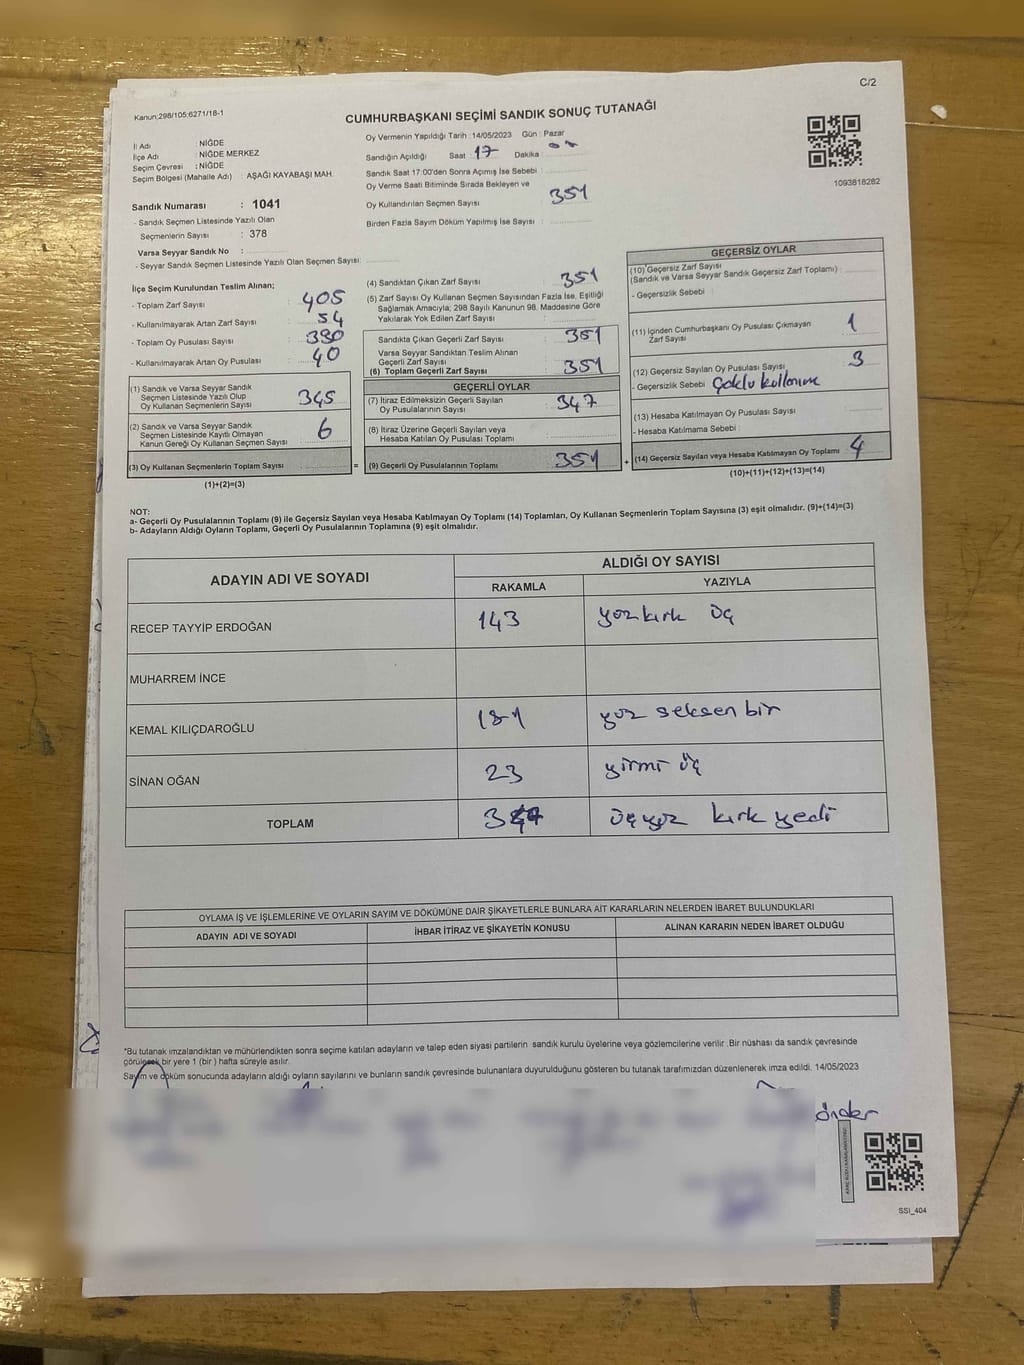 C/2
Kanun:298/105:6271/18-1
CUMHURBAŞKANI SEÇİMİ SANDIK SONUÇ TUTANAĞI
İl Adı : NİĞDE
İlçe Adı : NİĞDE MERKEZ
Seçim Çevresi : NİĞDE
Seçim Bölgesi (Mahalle Adı) : AŞAĞI KAYABAŞI MAH.
Sandık Numarası : 1041
- Sandık Seçmen Listesinde Yazılı Olan
Seçmenlerin Sayısı : 378
Varsa Seyyar Sandık No :
- Seyyar Sandık Seçmen Listesinde Yazılı Olan Seçmen Sayısı:
Oy Vermenin Yapıldığı Tarih :14/05/2023 Gün : Pazar
Sandığın Açıldığı Saat 17 Dakika
Sandık Saat 17:00'den Sonra Açımış İse Sebebi :
Oy Verme Saati Bitiminde Sırada Bekleyen ve
Oy Kullandırılan Seçmen Sayısı 351
Birden Fazla Sayım Döküm Yapılmış İse Sayısı :
1093818282
İlçe Seçim Kurulundan Teslim Alınan;
- Toplam Zarf Sayısı : 405
- Kullanılmayarak Artan Zarf Sayısı : 54
- Toplam Oy Pusulası Sayısı : 390
- Kullanılmayarak Artan Oy Pusulası : 40
(1) Sandık ve Varsa Seyyar Sandık
Seçmen Listesinde Yazılı Olup
Oy Kullanan Seçmenlerin Sayısı : 345
(2) Sandık ve Varsa Seyyar Sandık
Seçmen Listesinde Kayıtlı Olmayan
Kanun Gereği Oy Kullanan Seçmen Sayısı : 6
(3) Oy Kullanan Seçmenlerin Toplam Sayısı :
(1)+(2)=(3)
(4) Sandıktan Çıkan Zarf Sayısı : 351
(5) Zarf Sayısı Oy Kullanan Seçmen Sayısından Fazla İse, Eşitliği
Sağlamak Amacıyla; 298 Sayılı Kanunun 98. Maddesine Göre
Yakılarak Yok Edilen Zarf Sayısı :
Sandıkta Çıkan Geçerli Zarf Sayısı : 351
Varsa Seyyar Sandıktan Teslim Alınan
Geçerli Zarf Sayısı
(6) Toplam Geçerli Zarf Sayısı : 351
GEÇERLİ OYLAR
(7) İtiraz Edilmeksizin Geçerli Sayılan
Oy Pusulalarının Sayısı : 347
(8) İtiraz Üzerine Geçerli Sayılan veya
Hesaba Katılan Oy Pusulası Toplamı :
= (9) Geçerli Oy Pusulalarının Toplamı : 351
GEÇERSİZ OYLAR
(10) Geçersiz Zarf Sayısı
(Sandık ve Varsa Seyyar Sandık Geçersiz Zarf Toplamı) :
- Geçersizlik Sebebi :
(11) İçinden Cumhurbaşkanı Oy Pusulası Çıkmayan
Zarf Sayısı : 1
(12) Geçersiz Sayılan Oy Pusulası Sayısı : 3
- Geçersizlik Sebebi Çoklu kullanım
(13) Hesaba Katılmayan Oy Pusulası Sayısı :
- Hesaba Katılmama Sebebi :
+ (14) Geçersiz Sayılan veya Hesaba Katılmayan Oy Toplamı : 4
(10)+(11)+(12)+(13)=(14)
NOT:
a- Geçerli Oy Pusulalarının Toplamı (9) ile Geçersiz Sayılan veya Hesaba Katılmayan Oy Toplamı (14) Toplamları, Oy Kullanan Seçmenlerin Toplam Sayısına (3) eşit olmalıdır. (9)+(14)=(3)
b- Adayların Aldığı Oyların Toplamı, Geçerli Oy Pusulalarının Toplamına (9) eşit olmalıdır.
ADAYIN ADI VE SOYADI
ALDIĞI OY SAYISI
RAKAMLA YAZIYLA
RECEP TAYYİP ERDOĞAN 143 yüzkırk üç
MUHARREM İNCE
KEMAL KILIÇDAROĞLU 181 yüz seksen bir
SİNAN OĞAN 23 yirmi üç
TOPLAM 347 üçyüz kırk yedi
OYLAMA İŞ VE İŞLEMLERİNE VE OYLARIN SAYIM VE DÖKÜMÜNE DAİR ŞİKAYETLERLE BUNLARA AİT KARARLARIN NELERDEN İBARET BULUNDUKLARI
ADAYIN ADI VE SOYADI İHBAR İTİRAZ VE ŞİKAYETİN KONUSU ALINAN KARARIN NEDEN İBARET OLDUĞU
*Bu tutanak imzalandıktan ve mühürlendikten sonra seçime katılan adayların ve talep eden siyasi partilerin sandık kurulu üyelerine veya gözlemcilerine verilir .Bir nüshası da sandık çevresinde
görülecek bir yere 1 (bir ) hafta süreyle asılır.
Sayım ve döküm sonucunda adayların aldığı oyların sayılarını ve bunların sandık çevresinde bulunanlara duyurulduğunu gösteren bu tutanak tarafımızdan düzenlenerek imza edildi. 14/05/2023
önder
SSI_404